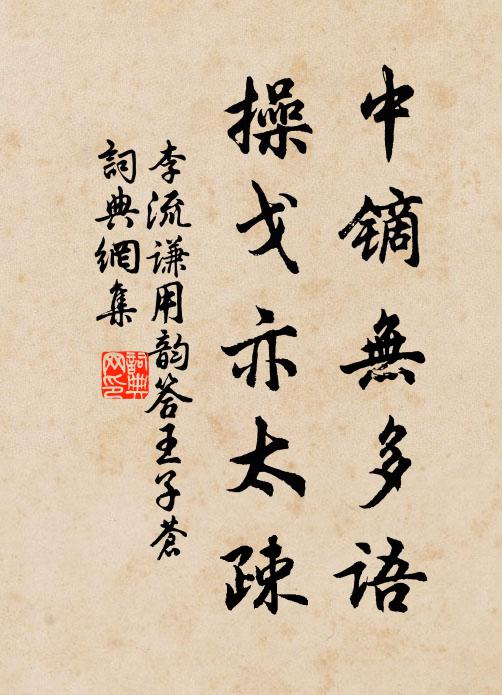 中鏑無多語
操戈亦太疎
李流谦用韵答王子蒼
詞典網集
詞典網印